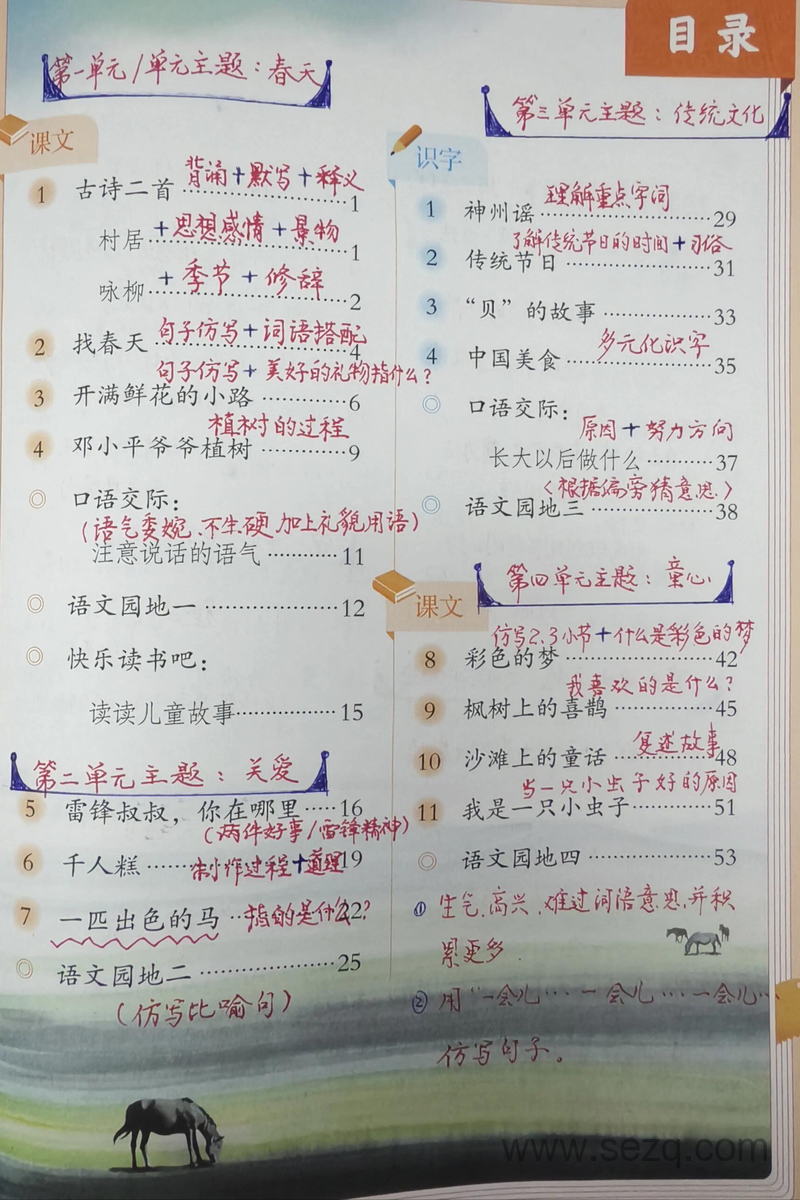 目录
第一单元/单元主题：春天
课文
背诵+默写+释义
1 古诗二首……1
+思想感情+景物
村居……1
+季节+修辞
咏柳……2
句子仿写+词语搭配
2 找春天……4
句子仿写+美好的礼物指什么？
3 开满鲜花的小路……6
植树的过程
4 邓小平爷爷植树……9
口语交际：
(语气委婉、不生硬,加上礼貌用语)
注意说话的语气……11
语文园地一……12
快乐读书吧：
读读儿童故事……15
第二单元主题：关爱
5 雷锋叔叔，你在哪里……16
(两件好事/雷锋精神)
6 千人糕……19
制作过程+道理
7 一匹出色的马……22
指的是什么？
语文园地二……25
(仿写比喻句)
第三单元主题：传统文化
识字
理解重点字词
1 神州谣……29
了解传统节日的时间+习俗
2 传统节日……31
3 “贝”的故事……33
多元化识字
4 中国美食……35
口语交际：
原因+努力方向
长大以后做什么……37
(根据偏旁猜意思)
语文园地三……38
第四单元主题：童心
课文
仿写2.3小节+什么是彩色的梦
8 彩色的梦……42
我喜欢的是什么？
9 枫树上的喜鹊……45
复述故事
10 沙滩上的童话……48
当一只小虫子好的原因
11 我是一只小虫子……51
语文园地四……53
① 生气、高兴、难过词语意思,并积
累更多.
② 用“一会儿…一会儿…一会儿…
仿写句子。
www.sezq.com